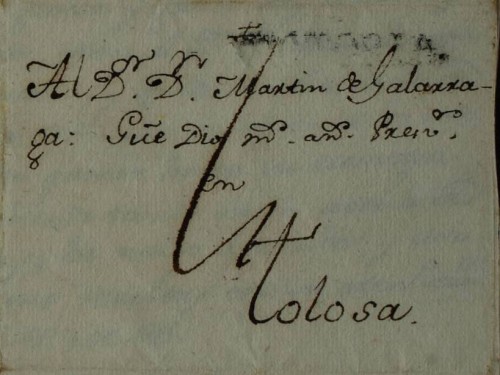 Al Dr. Dr. Martin de Galarra-
ga: Gūe Dios ms. as. Presvo.
en
Tolosa.